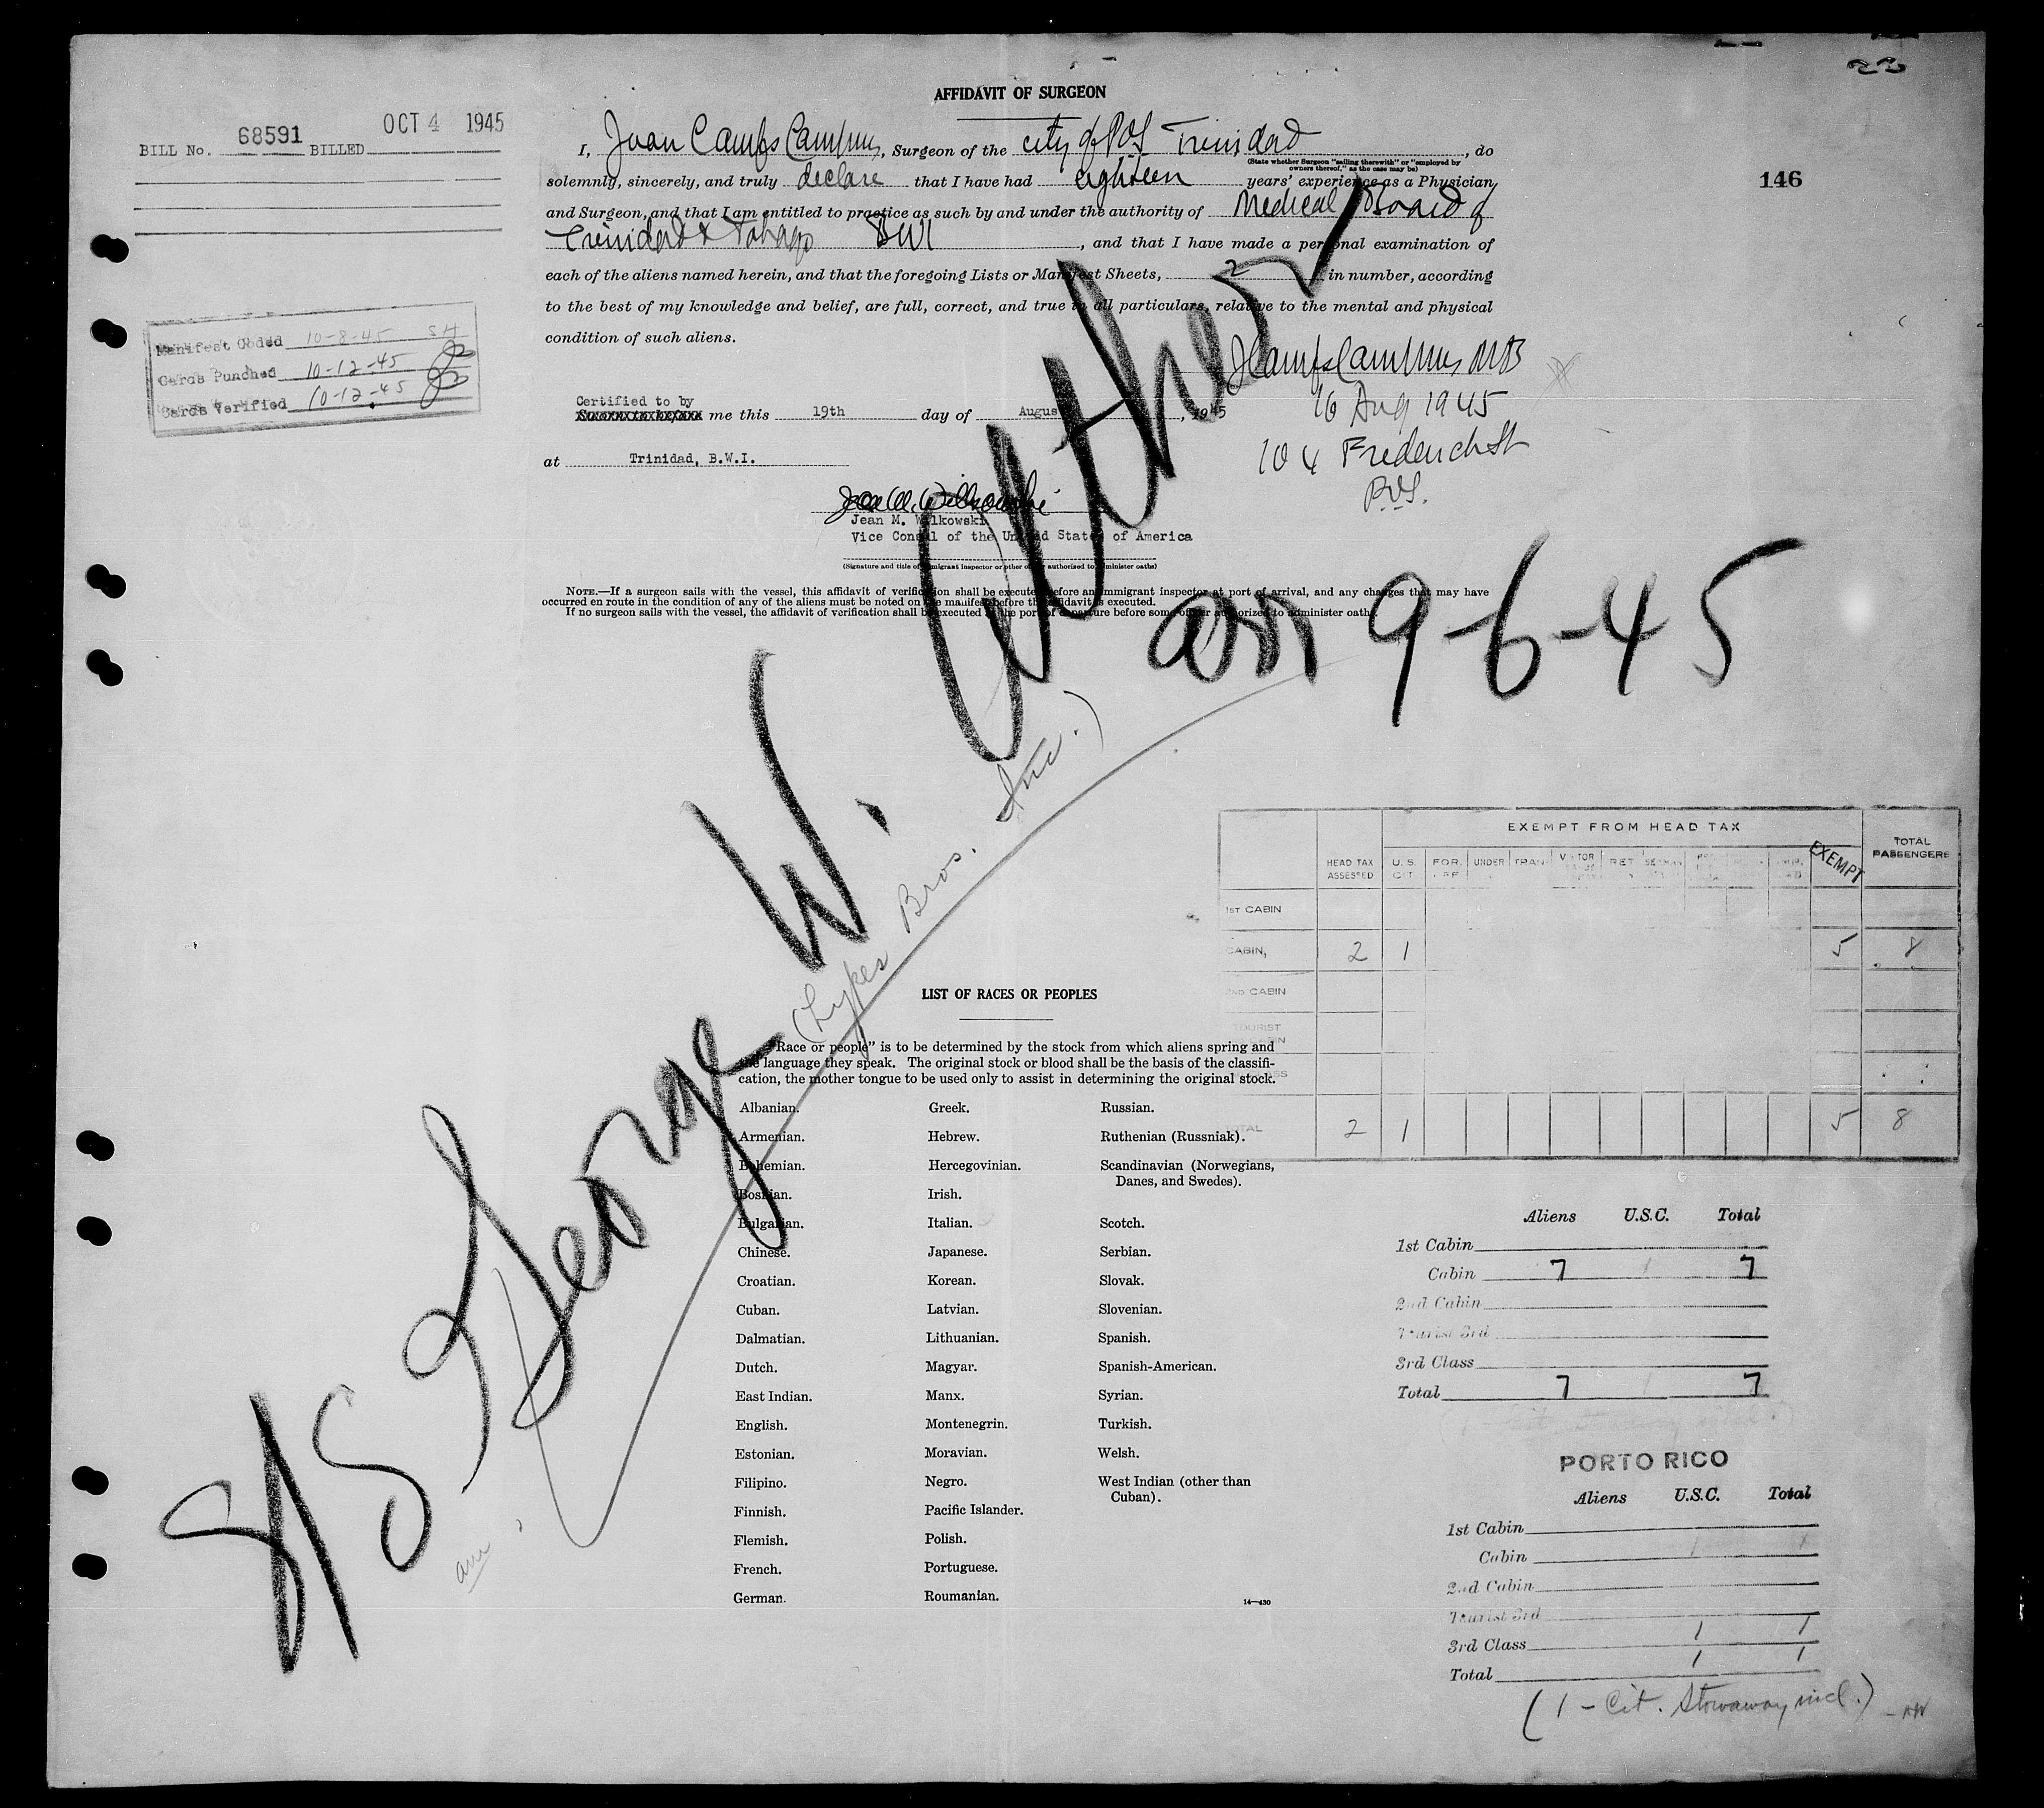 AFFIDAVIT OF SURGEON
146
BILL No. 68591 BILLED OCT 4 1945
I, Juan Camps Campins, Surgeon of the city of POS Trinidad, do
(State whether Surgeon "sailing therewith" or "employed by
owners thereof," as the case may be)
solemnly, sincerely, and truly declare that I have had eighteen years' experience as a Physician
and Surgeon, and that I am entitled to practice as such by and under the authority of Medical Board of
Trinidad & Tobago BWI, and that I have made a personal examination of
each of the aliens named herein, and that the foregoing Lists or Manifest Sheets, 2 in number, according
to the best of my knowledge and belief, are full, correct, and true in all particulars, relative to the mental and physical
condition of such aliens.
Manifest Coded 10-8-45 SH
Cards Punched 10-12-45
Cards Verified 10-12-45
J Camps Campins MB
16 Aug 1945
104 Frederick St
P.O.S.
Certified to by
me this 19th day of August, 1945
at Trinidad, B.W.I.
Jean M. Wilkowski
Jean M. Wilkowski
Vice Consul of the United States of America
(Signature and title of immigrant inspector or other officer authorized to administer oaths)
NOTE.—If a surgeon sails with the vessel, this affidavit of verification shall be executed before an immigrant inspector at port of arrival, and any changes that may have
occurred en route in the condition of any of the aliens must be noted on the manifest before the affidavit is executed.
If no surgeon sails with the vessel, the affidavit of verification shall be executed at the port of departure before some officer authorized to administer oaths.
S/S George W. Ather
arr 9-6-45
(Lykes Bros. Inc.)
EXEMPT FROM HEAD TAX
HEAD TAX ASSESSED U.S. CIT FOR. UNDER TRAN RET EXEMPT TOTAL PASSENGERS
1ST CABIN
CABIN, 2 1 5 8
2ND CABIN
TOURIST
TOTAL 2 1 5 8
LIST OF RACES OR PEOPLES
"Race or people" is to be determined by the stock from which aliens spring and
the language they speak. The original stock or blood shall be the basis of the classifi-
cation, the mother tongue to be used only to assist in determining the original stock.
Albanian. Greek. Russian.
Armenian. Hebrew. Ruthenian (Russniak).
Bohemian. Hercegovinian. Scandinavian (Norwegians,
Danes, and Swedes).
Bosnian. Irish.
Bulgarian. Italian. Scotch.
Chinese. Japanese. Serbian.
Croatian. Korean. Slovak.
Cuban. Latvian. Slovenian.
Dalmatian. Lithuanian. Spanish.
Dutch. Magyar. Spanish-American.
East Indian. Manx. Syrian.
English. Montenegrin. Turkish.
Estonian. Moravian. Welsh.
Filipino. Negro. West Indian (other than
Cuban).
Finnish. Pacific Islander.
Flemish. Polish.
French. Portuguese.
German. Roumanian.
14—430
Aliens U.S.C. Total
1st Cabin
Cabin 7 7
2nd Cabin
Tourist 3rd
3rd Class
Total 7 7
PORTO RICO
Aliens U.S.C. Total
1st Cabin
Cabin 1 1
2nd Cabin
Tourist 3rd
3rd Class 1 1
Total 1 1
(1 - Cit. Stowaway incl.)